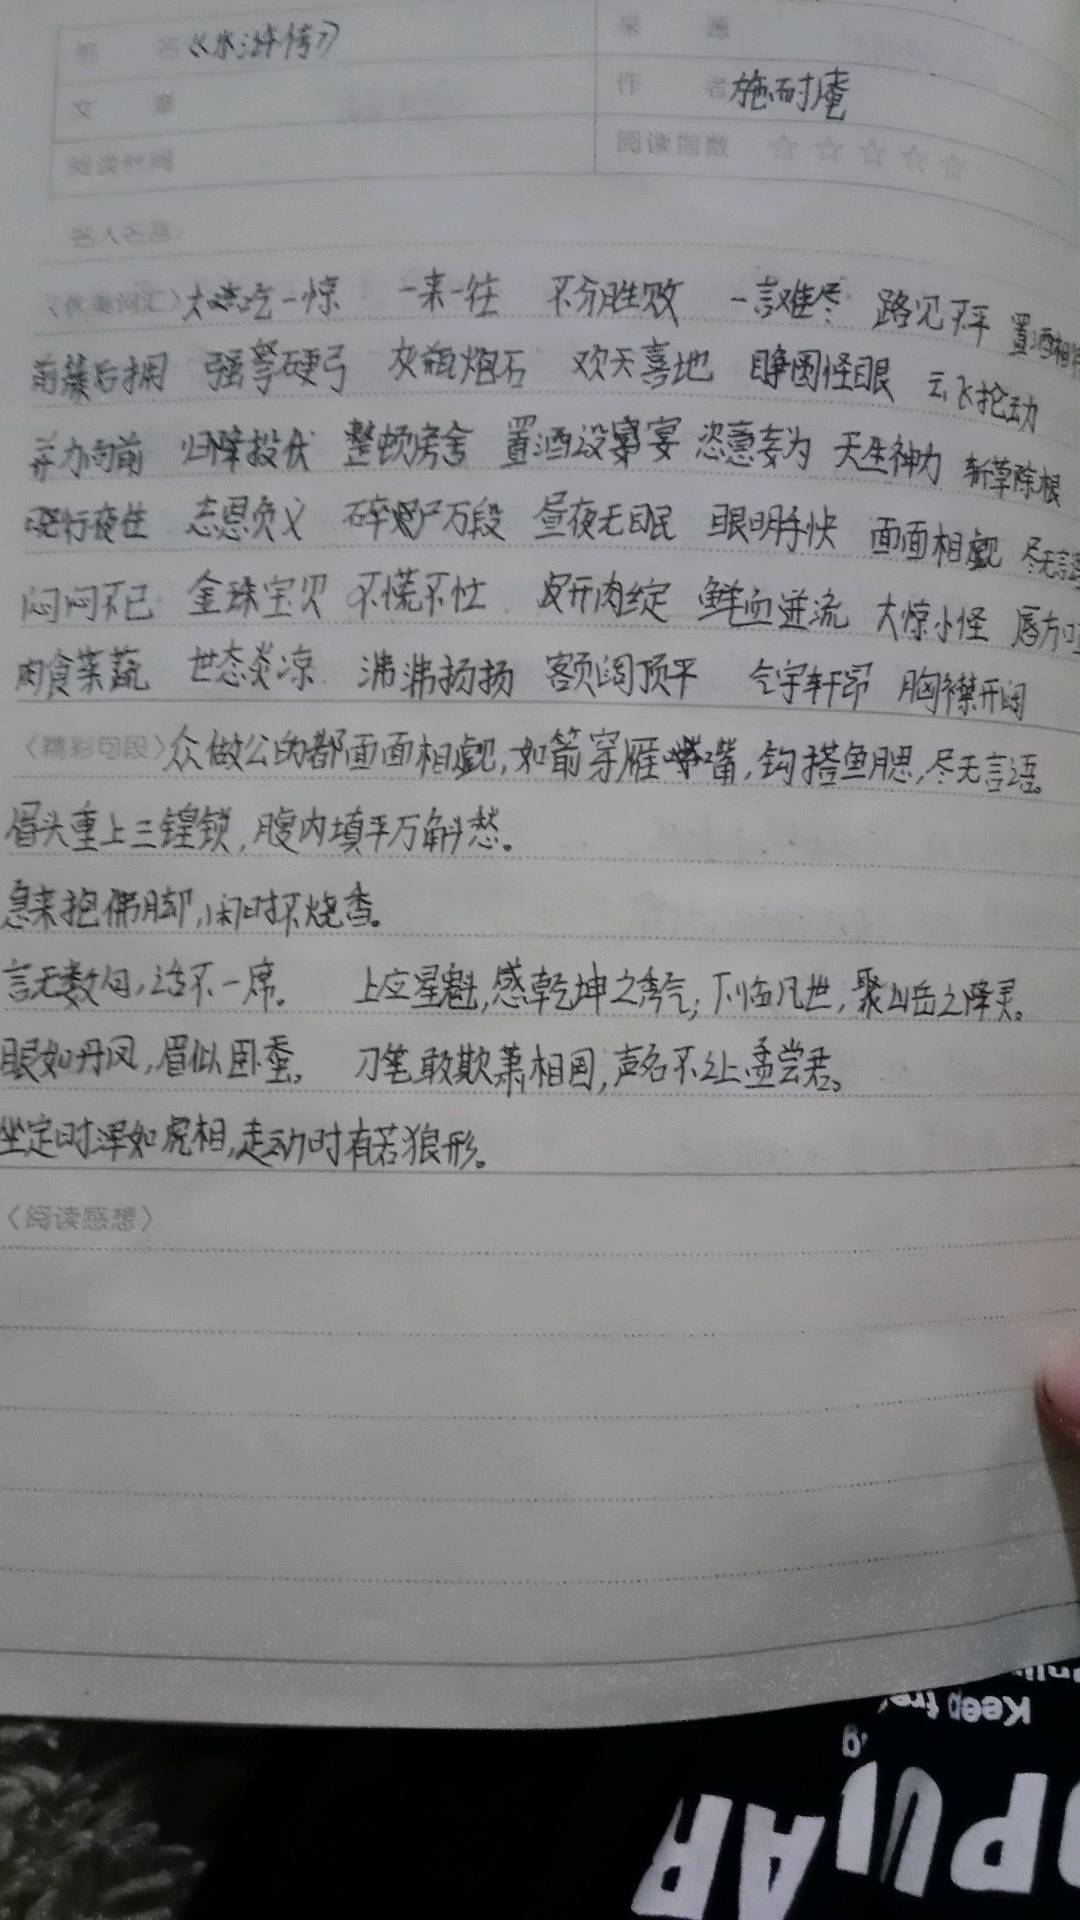 书 名 《水浒传》 来 源
文 章 作 者 施耐庵
阅读时间 阅读指数 ☆☆☆☆☆
名人名言:
〈优美词汇〉大吃一惊 一来一往 不分胜败 一言难尽 路见不平 置酒相
前簇后拥 强弩硬弓 灰瓶炮石 欢天喜地 睁圆怪眼 云飞抡动
并力向前 归降投伏 整顿房舍 置酒设宴 恣意妄为 天生神力 斩草除根
晓行夜住 忘恩负义 碎尸万段 昼夜无眠 眼明手快 面面相觑 尽无言语
闷闷不已 金珠宝贝 不慌不忙 皮开肉绽 鲜血迸流 大惊小怪 唇方口
肉食菜蔬 世态炎凉 沸沸扬扬 额阔顶平 气宇轩昂 胸襟开阔
〈精彩句段〉众做公的都面面相觑,如箭穿雁嘴,钩搭鱼腮,尽无言语。
眉头重上三锽锁,腹内填平万斛愁。
急来抱佛脚,闲时不烧香。
言无数句,话不一席。 上应星魁,感乾坤之秀气;下临凡世,聚山岳之降灵。
眼如丹凤,眉似卧蚕。 刀笔敢欺萧相国,声名不让孟尝君。
坐定时浑如虎相,走动时有若狼形。
〈阅读感想〉
Keep
PULAR